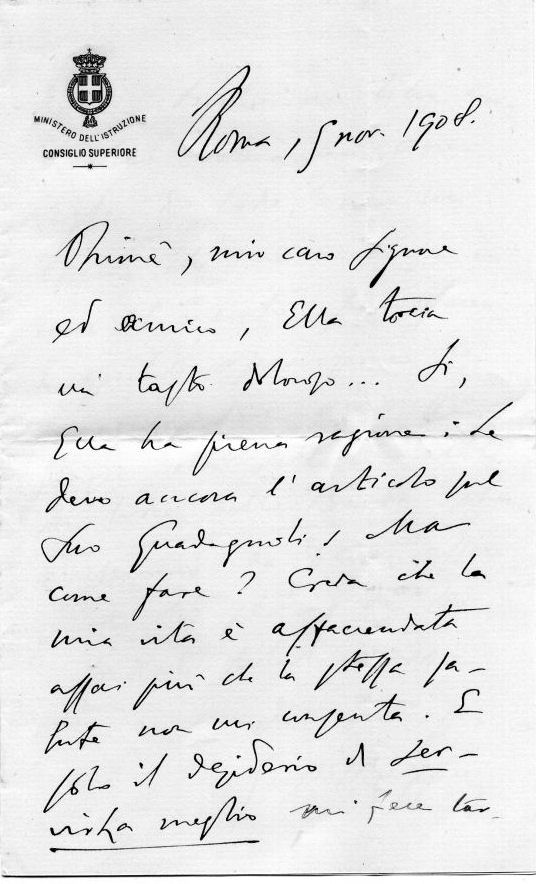 MINISTERO DELL'ISTRUZIONE
CONSIGLIO SUPERIORE
Roma, 5 nov. 1908.
Ohimè, mio caro Signore
ed amico, Ella tocca
un tasto doloroso... Sì,
Ella ha piena ragione: Le
devo ancora l'articolo sul
Suo Guadagnoli, Ma
come fare? Creda che la
mia vita è affaccendata
assai più che la stessa sa-
lute non mi consenta. E
solo il desiderio di ser-
virla meglio mi fece tar-